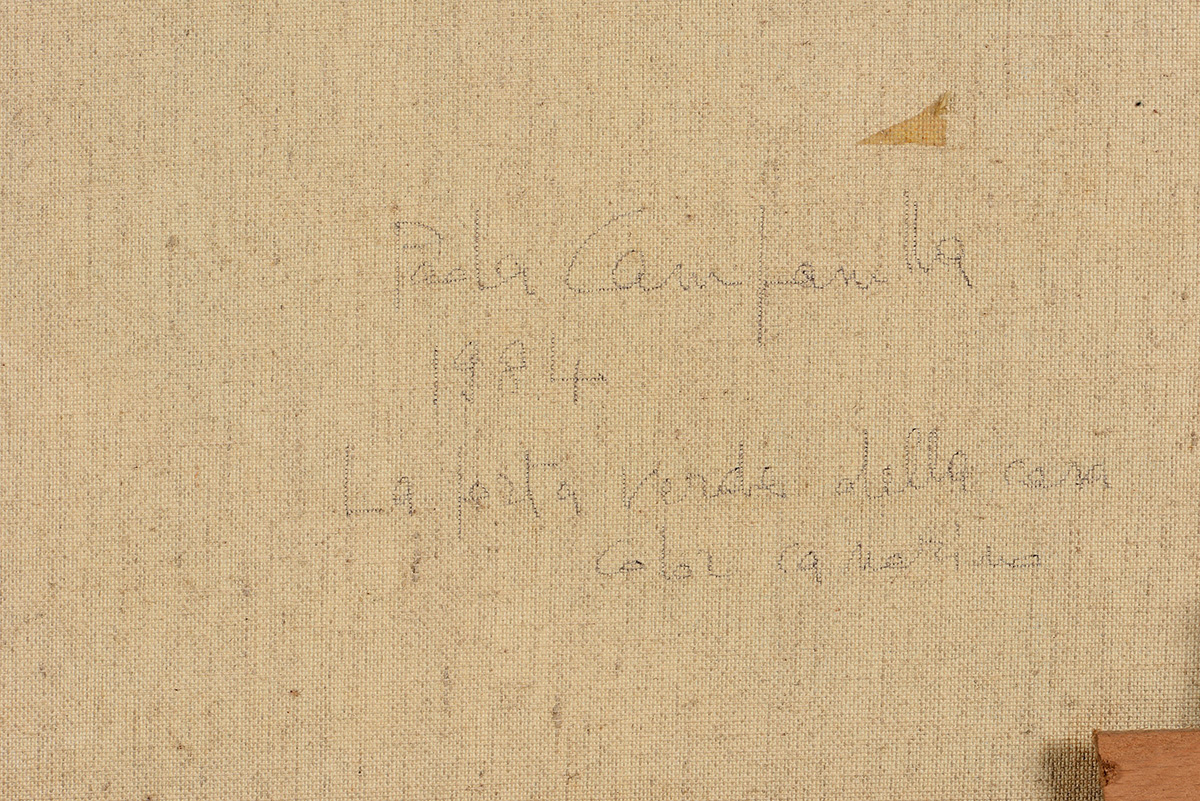 Paola Campanella
1984
La porta verde della casa
color canarino